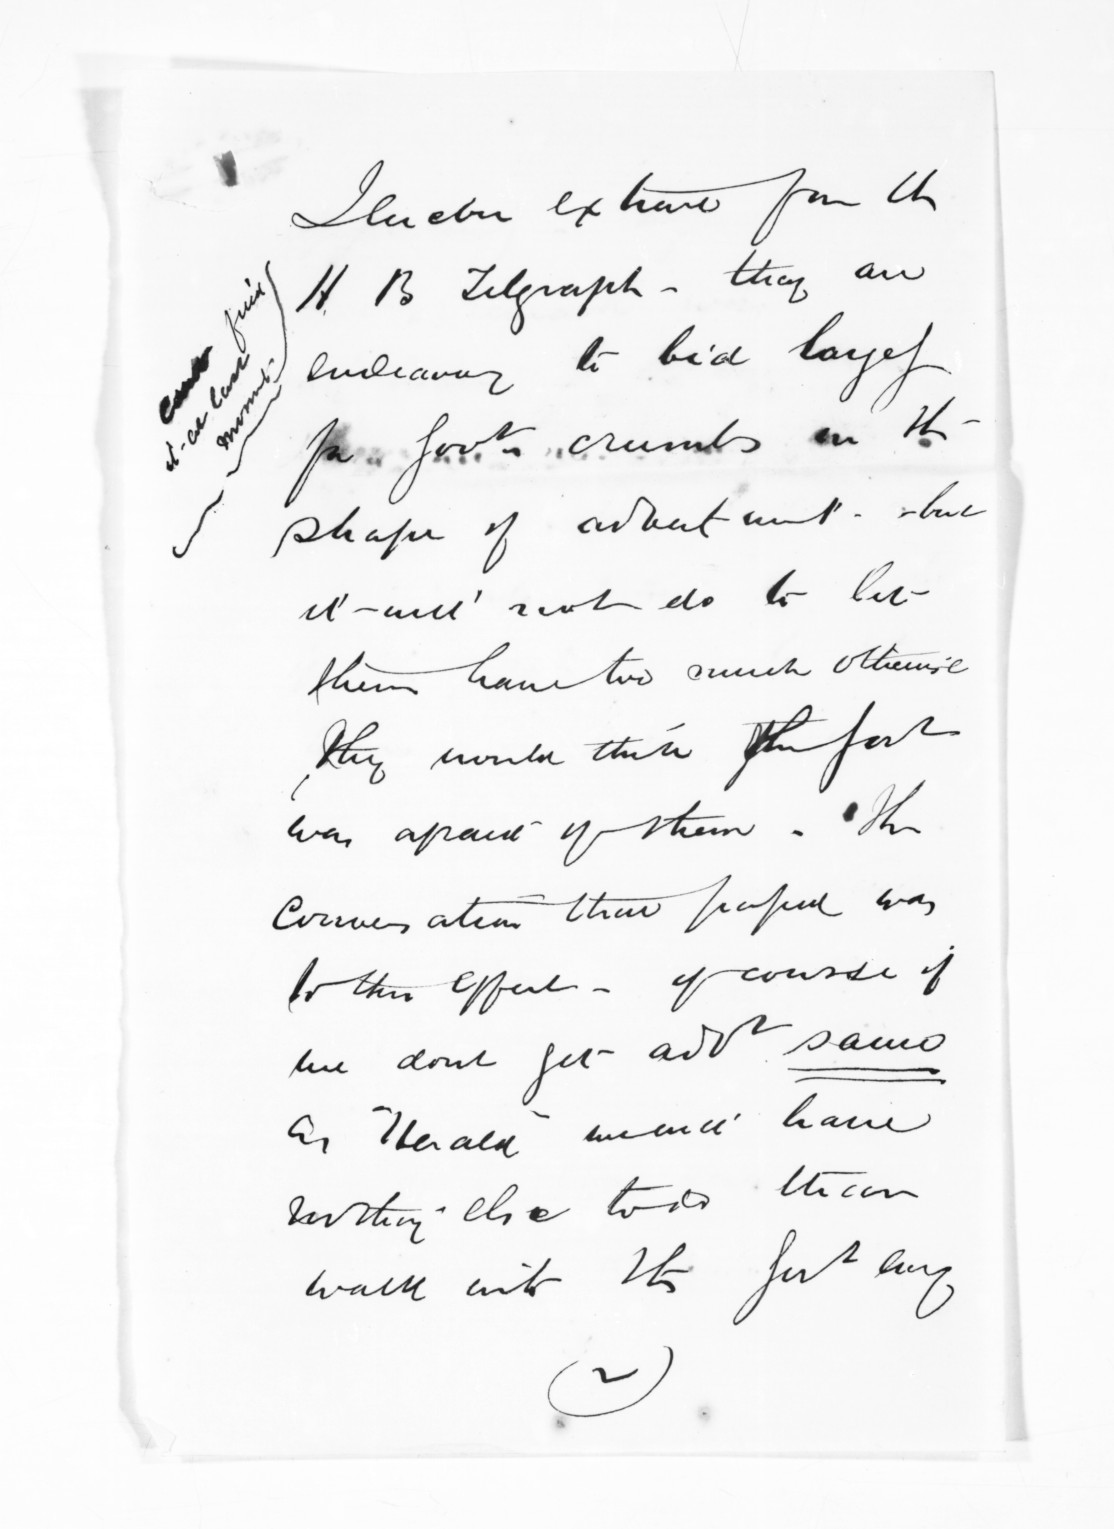 I enclose extract from the
H B Telegraph - they are
endeavog to bid largely
for Govt crumbs in the
shape of advertments - but
it will not do to let
them have too much otherwise
they would think the Govt
was afraid of them - The
conversation that passed was
to this effect - of course if
we dont get advt same
as "Herald" we will have
nothing else to do than
walk into the Govt every
(2)
find
it - at last
moment